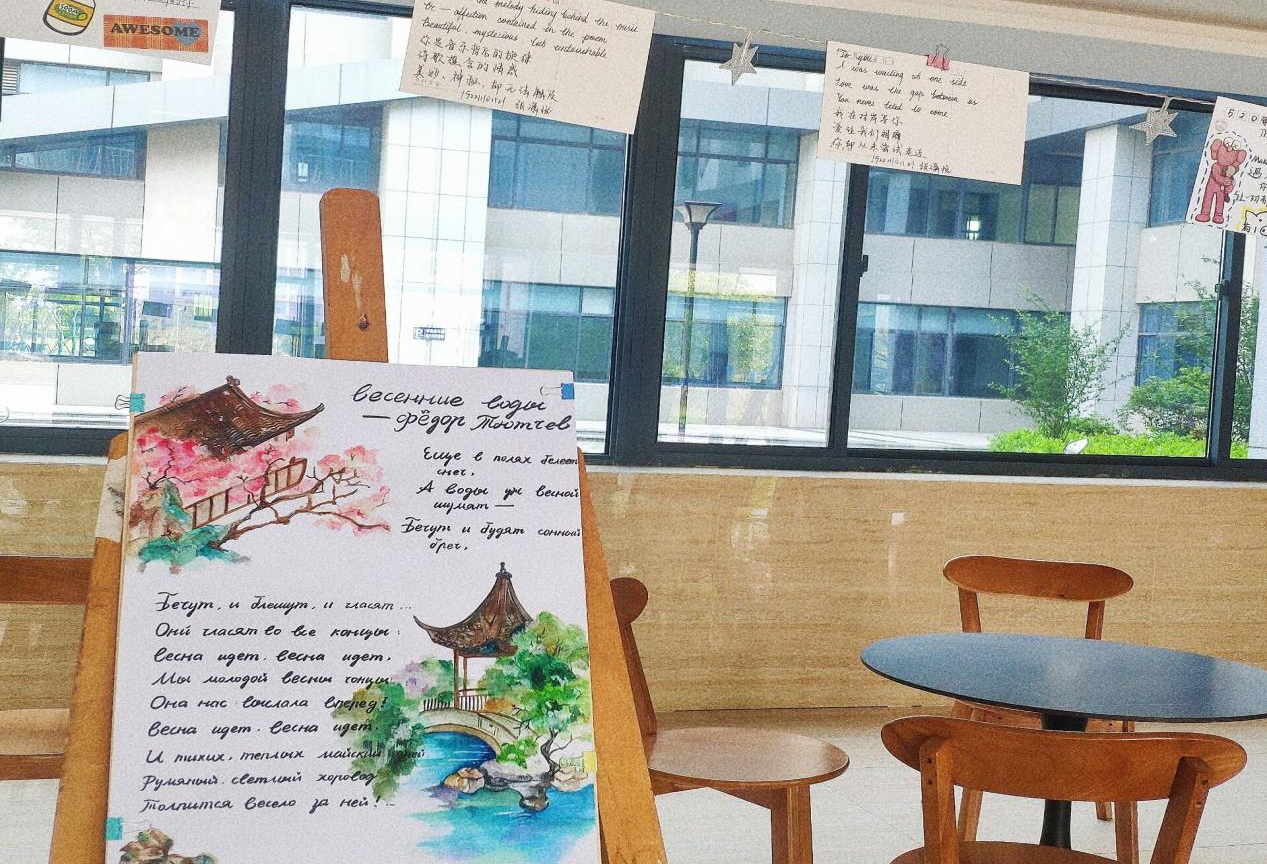 AWESOME
the melody hiding behind the music
or — affection contained in the poem
Beautiful, mysterious, but untouchable
你是音乐背后的旋律
诗歌蕴含的情感
美妙、神秘，却无法触及
I was waiting at one side
Love was the gap between us
You never tried to come
我在对岸等你
爱让我们相隔
你却从未尝试走近
520
весенние воды
— Фёдор Тютчев
Еще в полях белеет
снег,
А воды уж весной
шумят —
Бегут и будят сонный
брег,
Бегут, и блещут, и гласят...
Они гласят во все концы:
весна идет, весна идет,
Мы молодой весны гонцы,
Она нас выслала вперед!
Весна идет, весна идет,
И тихих, теплых майских дней
Румяный, светлый хоровод
Толпится весело за ней!..